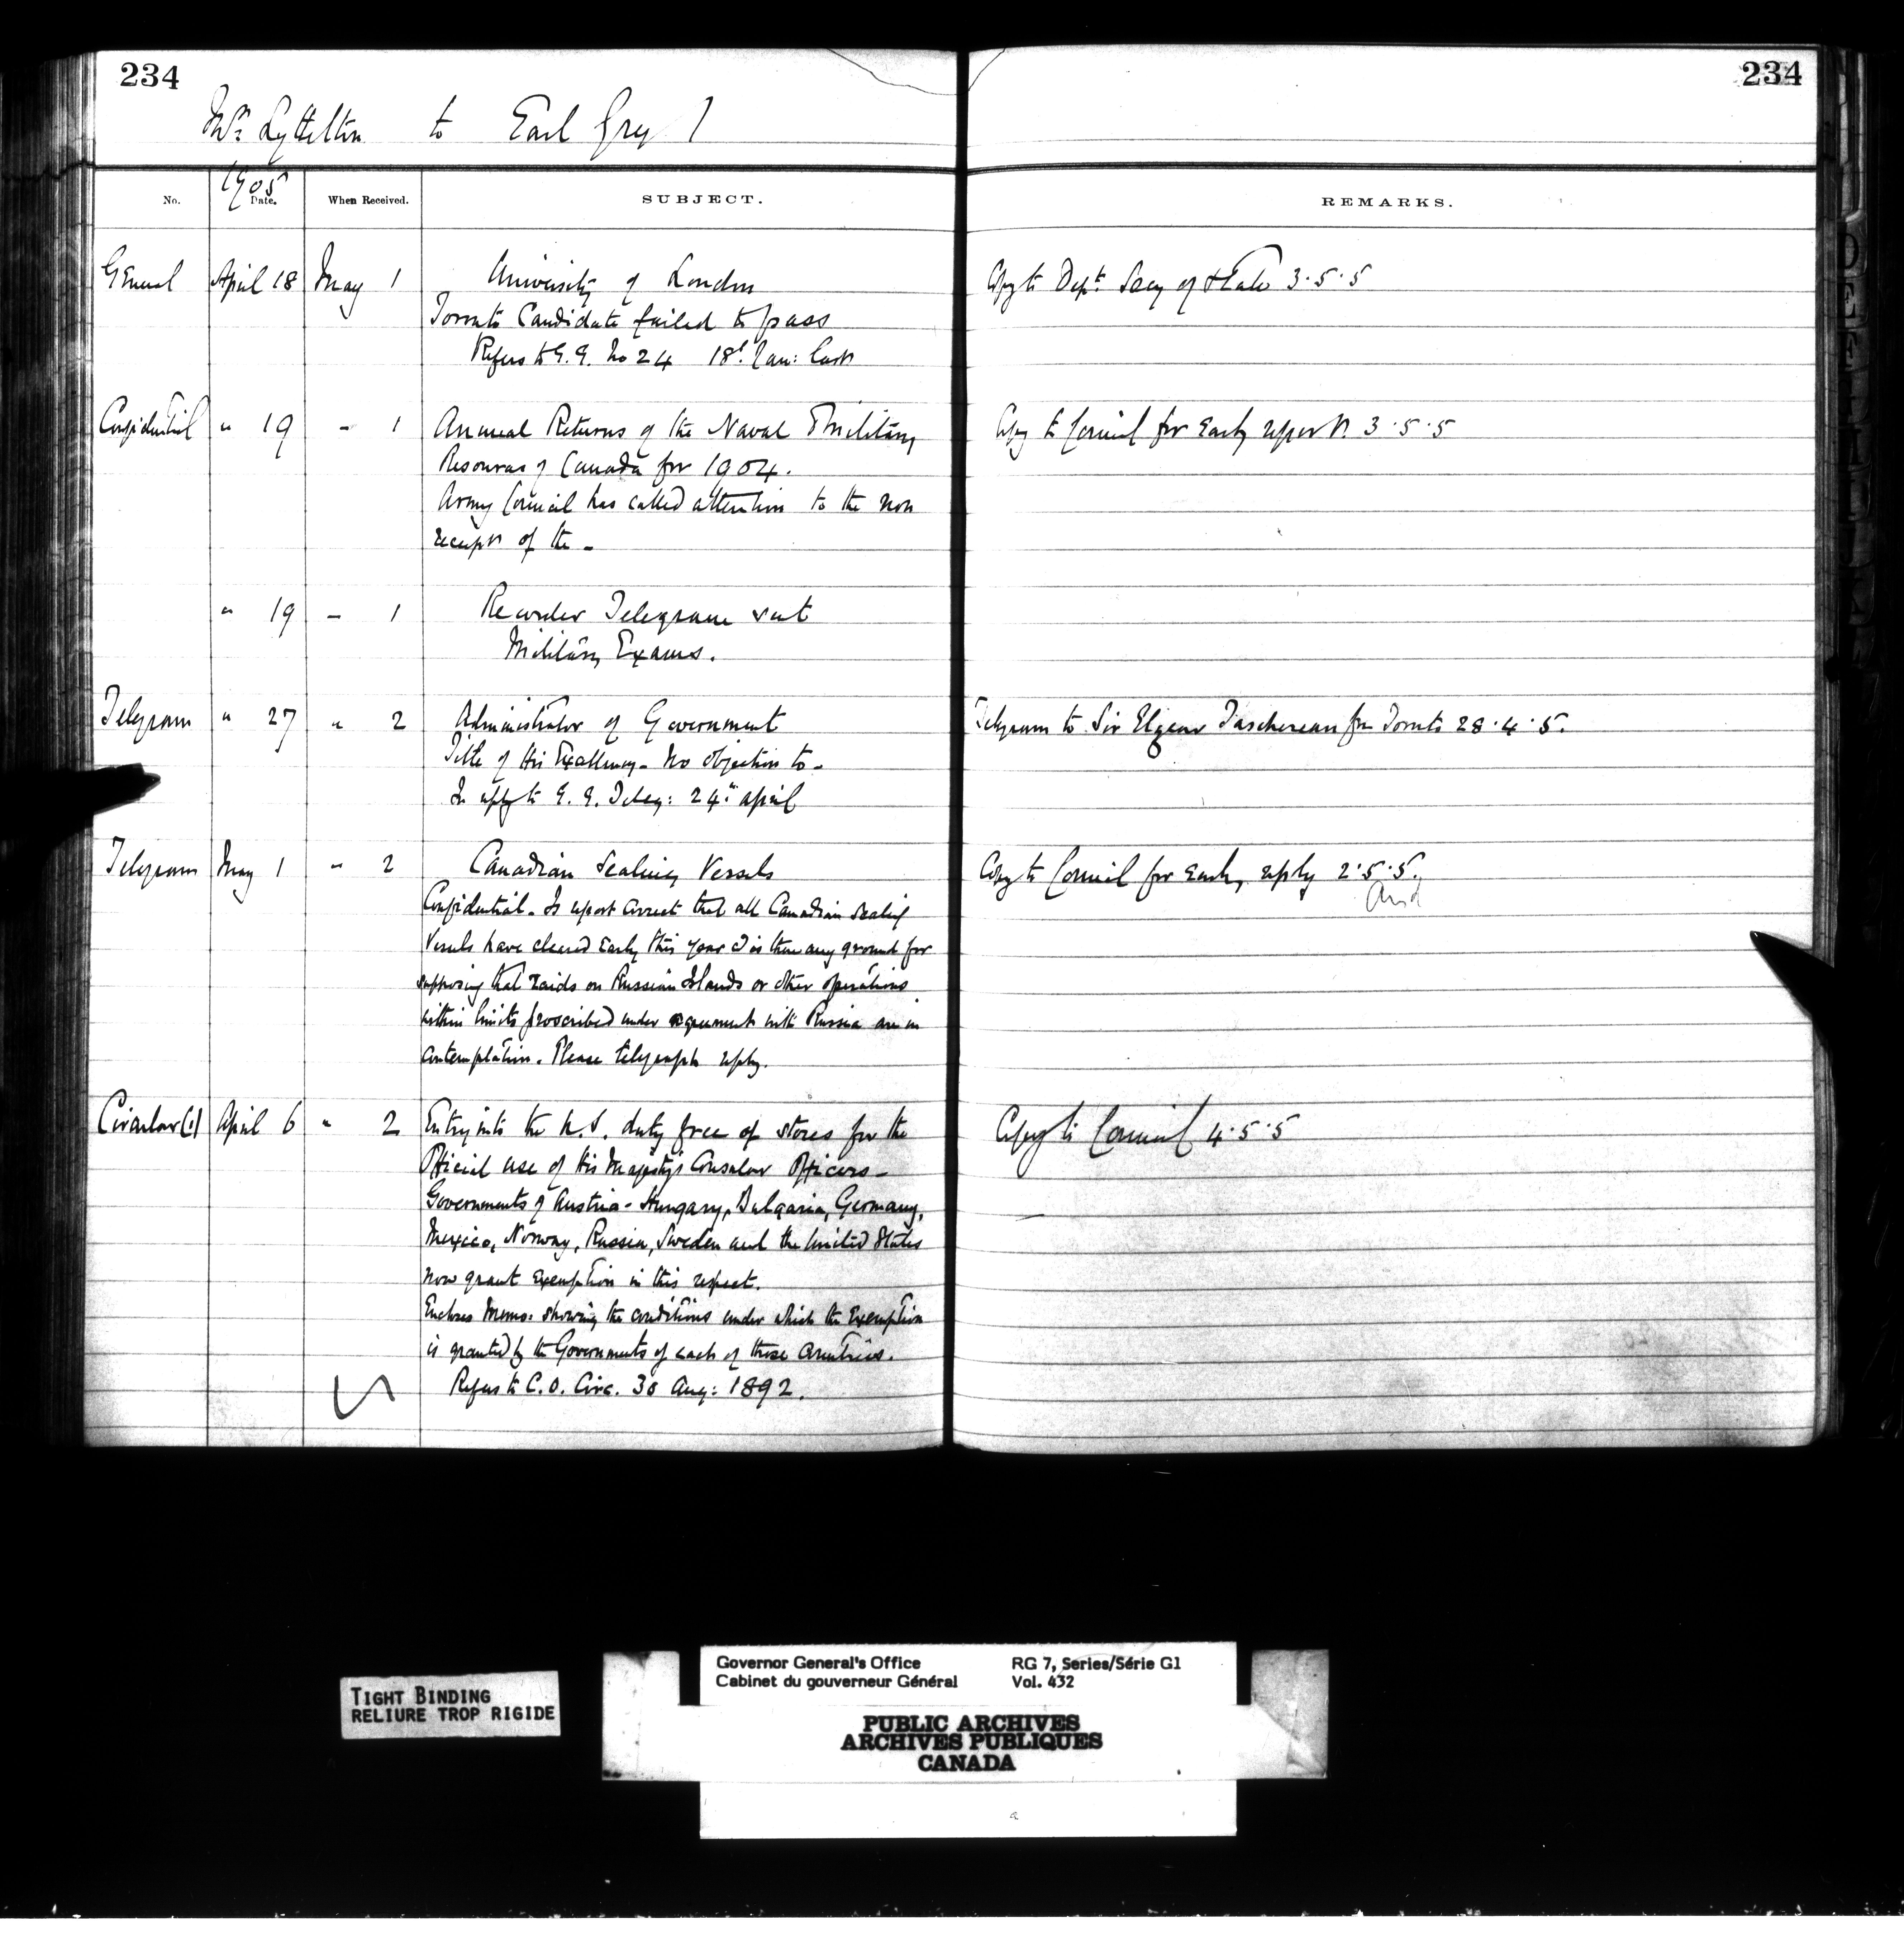 234
234
Mr. Lyttelton to Earl Grey
1905
No.
Date.
When Received.
SUBJECT.
REMARKS.
General April 18 May 1 University of London Copy to Dept. Secy of State 3.5.5
Toronto Candidate failed to pass
Refers to G.G. No 24 18th Jan: last
Confidential " 19 - 1 Annual Returns of the Naval & Military Copy to Council for Early report. 3.5.5
Resources of Canada for 1904.
Army Council has called attention to the non
receipt of the -
" 19 - 1 Recorder Telegram sent
Military Exams.
Telegram " 27 " 2 Administrator of Government Telegram to Sir Elzear Taschereau from Toronto 28.4.5.
Title of His Excellency - No objection to -
In reply to G.G. Teleg: 24th April
Telegram May 1 " 2 Canadian Sealing Vessels Copy to Council for Early reply 2.5.5.
Confidential - Is report correct that all Canadian Sealing
Vessels have cleared Early this year & is there any ground for
supposing that raids on Russian Islands or other operations
within limits proscribed under agreement with Russia are in
contemplation. Please telegraph reply.
Circular (1) April 6 " 2 Entry into the U.S. duty free of stores for the Copy to Council 4.5.5
Official use of His Majesty's Consular Officers -
Governments of Austria-Hungary, Bulgaria, Germany,
Mexico, Norway, Russia, Sweden and the United States
now grant Exemption in this respect.
Encloses Memo: showing the conditions under which the Exemption
is granted by the Governments of each of these Countries.
Refers to C.O. Circ. 30 Aug: 1892.
TIGHT BINDING
RELIURE TROP RIGIDE
Governor General's Office
Cabinet du gouverneur Général
RG 7, Series/Série G1
Vol. 432
PUBLIC ARCHIVES
ARCHIVES PUBLIQUES
CANADA